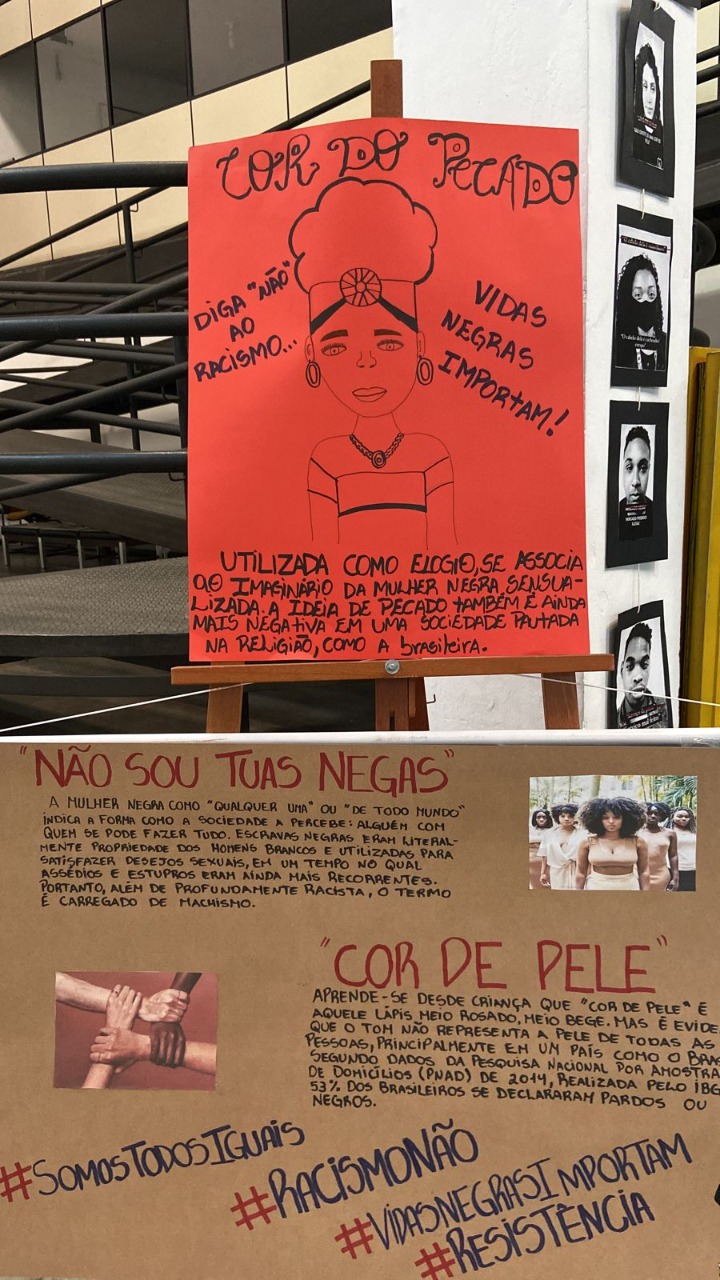 COR DO PECADO
DIGA "NÃO"
AO
RACISMO...
VIDAS
NEGRAS
IMPORTAM!
UTILIZADA COMO ELOGIO, SE ASSOCIA
AO IMAGINÁRIO DA MULHER NEGRA SENSUA-
LIZADA. A IDEIA DE PECADO TAMBÉM É AINDA
MAIS NEGATIVA EM UMA SOCIEDADE PAUTADA
NA RELIGIÃO, COMO A brasileira.
"NÃO SOU TUAS NEGAS"
A MULHER NEGRA COMO "QUALQUER UMA" OU "DE TODO MUNDO"
INDICA A FORMA COMO A SOCIEDADE A PERCEBE: ALGUÉM COM
QUEM SE PODE FAZER TUDO. ESCRAVAS NEGRAS ERAM LITERAL-
MENTE PROPRIEDADE DOS HOMENS BRANCOS E UTILIZADAS PARA
SATISFAZER DESEJOS SEXUAIS, EM UM TEMPO NO QUAL
ASSÉDIOS E ESTUPROS ERAM AINDA MAIS RECORRENTES.
PORTANTO, ALÉM DE PROFUNDAMENTE RACISTA, O TERMO
É CARREGADO DE MACHISMO.
"COR DE PELE"
APRENDE-SE DESDE CRIANÇA QUE "COR DE PELE" É
AQUELE LÁPIS MEIO ROSADO, MEIO BEGE. MAS É EVIDE
QUE O TOM NÃO REPRESENTA A PELE DE TODAS AS
PESSOAS, PRINCIPALMENTE EM UM PAÍS COMO O BRAS
SEGUNDO DADOS DA PESQUISA NACIONAL POR AMOSTRA
DE DOMICÍLIOS (PNAD) DE 2014, REALIZADA PELO IBG
53% DOS BRASILEIROS SE DECLARARAM PARDOS OU
NEGROS.
#SOMOSTODOSIGUAIS
#RACISMONÃO
#VIDASNEGRASIMPORTAM
#RESISTÊNCIA